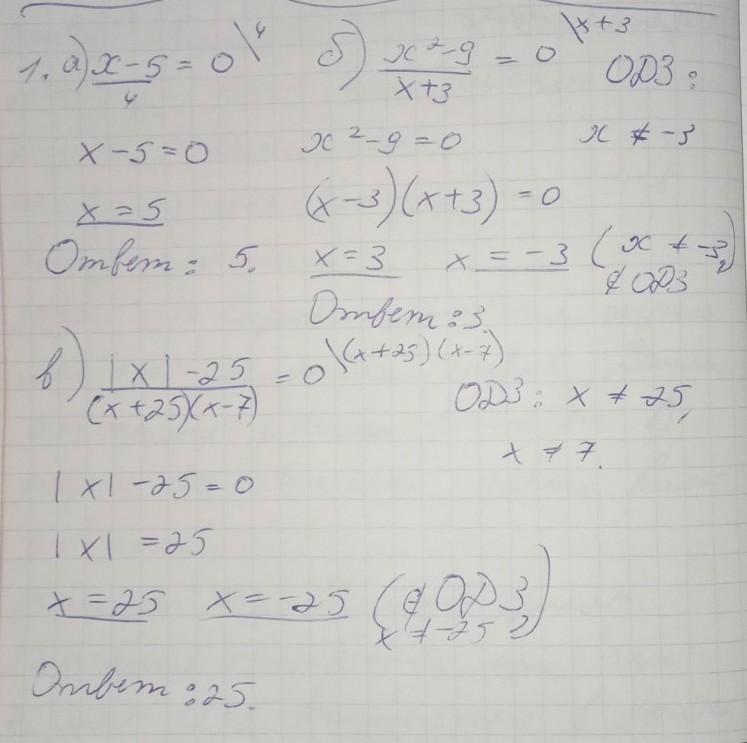 1. а) x-5/4 = 0 \4
x-5=0
x=5
Ответ: 5.
б) x²-9/x+3 = 0 \x+3
ОДЗ:
x ≠ -3
x²-9=0
(x-3)(x+3)=0
x=3 x=-3 (x≠-3, ∉ ОДЗ)
Ответ: 3.
в) |x|-25/(x+25)(x-7) = 0 \(x+25)(x-7)
ОДЗ: x ≠ -25,
x ≠ 7.
|x|-25=0
|x|=25
x=25 x=-25 (∉ ОДЗ, x≠-25)
Ответ: 25.